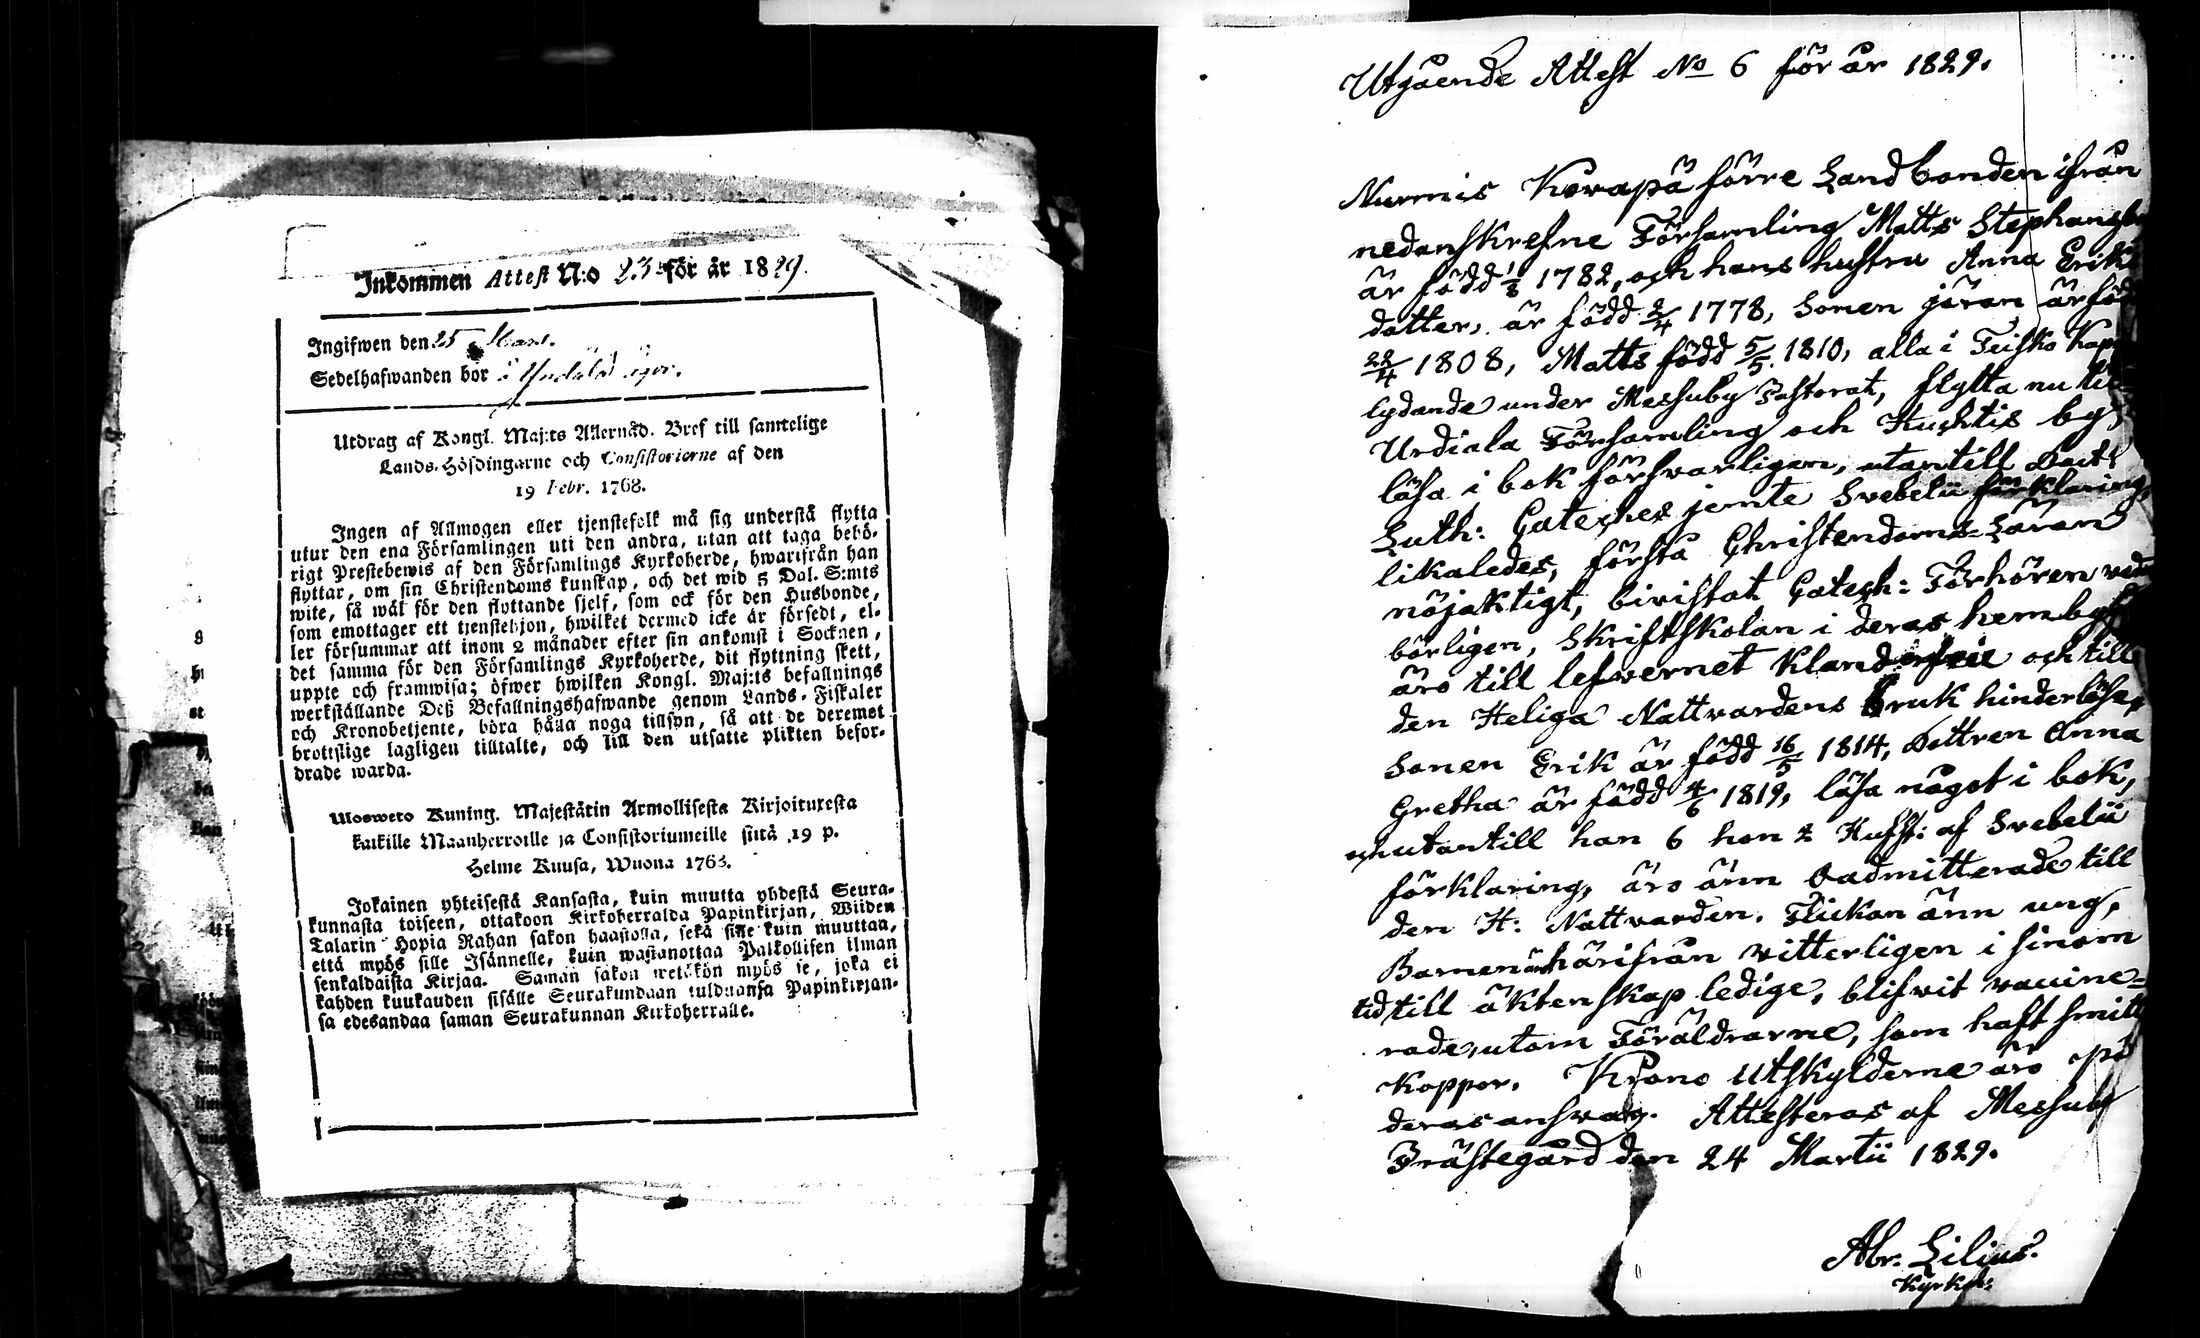 Inkommen Attest N:o 23 för år 1829.
Ingifwen den 25 Mars.
Sedelhafwanden bor i
Utdrag af Kongl. Maj:ts Allernåd. Bref till samtelige
Lands-Höfdingarne och Consistorierne af den
19 Febr. 1768.
Ingen af Allmogen eller tjenstefolk må sig understå flytta
utur den ena Församlingen uti den andra, utan att taga behö-
rigt Prestebewis af den Församlings Kyrkoherde, hwarifrån han
flyttar, om sin Christendoms kunskap, och det wid 5 Dal. S:mts
wite, så wäl för den flyttande sjelf, som ock för den Husbonde,
som emottager ett tjenstehjon, hwilket dermed icke är försedt, el-
ler försummar att inom 2 månader efter sin ankomst i Socknen,
det samma för den Församlings Kyrkoherde, dit flyttning skett,
uppte och framwisa; öfwer hwilken Kongl. Maj:ts befallnings
werkställande Deß Befallningshafwande genom Lands-Fiskaler
och Kronobetjente, böra hålla noga tillsyn, så att de deremot
brottslige lagligen tilltalte, och till den utsatte plikten befor-
drade warda.
Ulosweto Kuning. Majestätin Armollisesta Kirjoituxesta
kaikille Maanherroille ja Consistoriumeille siitä 19 p.
Helme Kuusa, Wuona 1768.
Jokainen yhteisestä Kansasta, kuin muutta yhdestä Seura-
kunnasta toiseen, ottakoon Kirkoherralda Papinkirjan, Wiiden
Talarin Hopia Rahan sakon haastolla, sekä sille kuin muuttaa,
että myös sille Isännelle, kuin wastanottaa Palkollisen ilman
senkaldaista Kirjaa. Saman sakon wetäkön myös se, joka ei
kahden kuukauden sisälle Seurakundaan tulduansa Papinkirjan-
sa edesandaa saman Seurakunnan Kirkoherralle.
Utgående Attest No 6 för år 1829.
Nurmis Korapä förre Landbonden ifrån
nedanskrefne Församling Matts Stephans
är född 1/8 1782, och hans hustru Anna Eriks
dotter, är född 2/4 1778, Sonen jöran är född
22/4 1808, Matts född 5/5 1810, alla i Teisko Kap
lydande under Messuby Pastorat, flytta nu till
Urdiala Församling och Huhtis by,
läsa i bok försvarligen, utantill Doct:
Luth: Cateches jemte Svebelii förklaring,
likaledes, förstå Christendoms-Läran
nöjaktigt, bivistat Catech: Förhören veder
börligen, Skriftskolan i deras hemby,
äro till lefvernet klanderfrie och till
den Heliga Nattvardens bruk hinderlöse,
Sonen Erik är född 16/5 1814, Dottren Anna
Gretha är född 4/6 1819, läsa något i bok,
och utantill han 6 hon 2 Hufst: af Svebelii
förklaring, äro änn oadmitterade till
den H: Nattvarden. Flickan änn ung,
Barnen äro härifrån vitterligen i sinom
tid till äktenskap ledige, blifvit vaccine-
rade, utom Föräldrarne, som haft smitt
koppor. Krono Utskylderne äro på
deras ansvar. Attesteras af Messuby
Prästegård den 24 Martii 1829.
Abr. Lilius.
Kyrkoh: